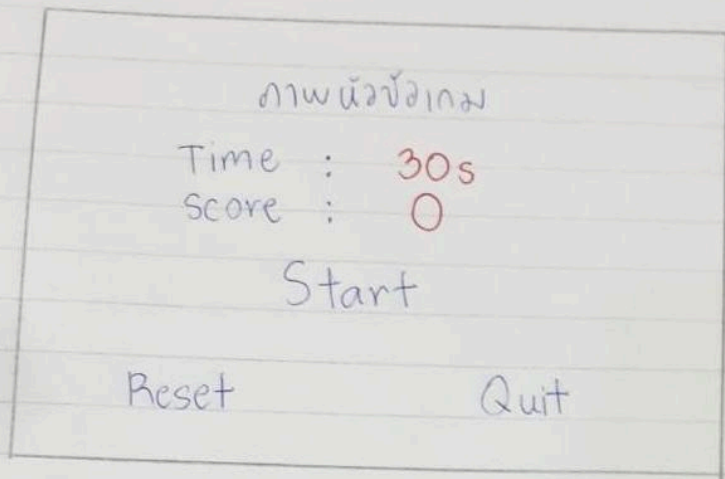 ภาพหัวข้อเกม
Time : 30s
Score : 0
Start
Reset Quit